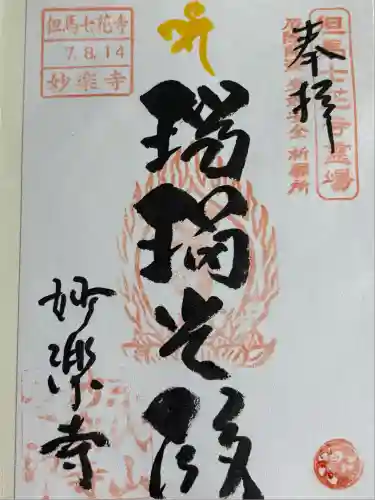 奉拝
但馬七花寺霊場
祈願所
瑠璃光殿
妙楽寺
但馬七花寺
7.8.14
妙楽寺